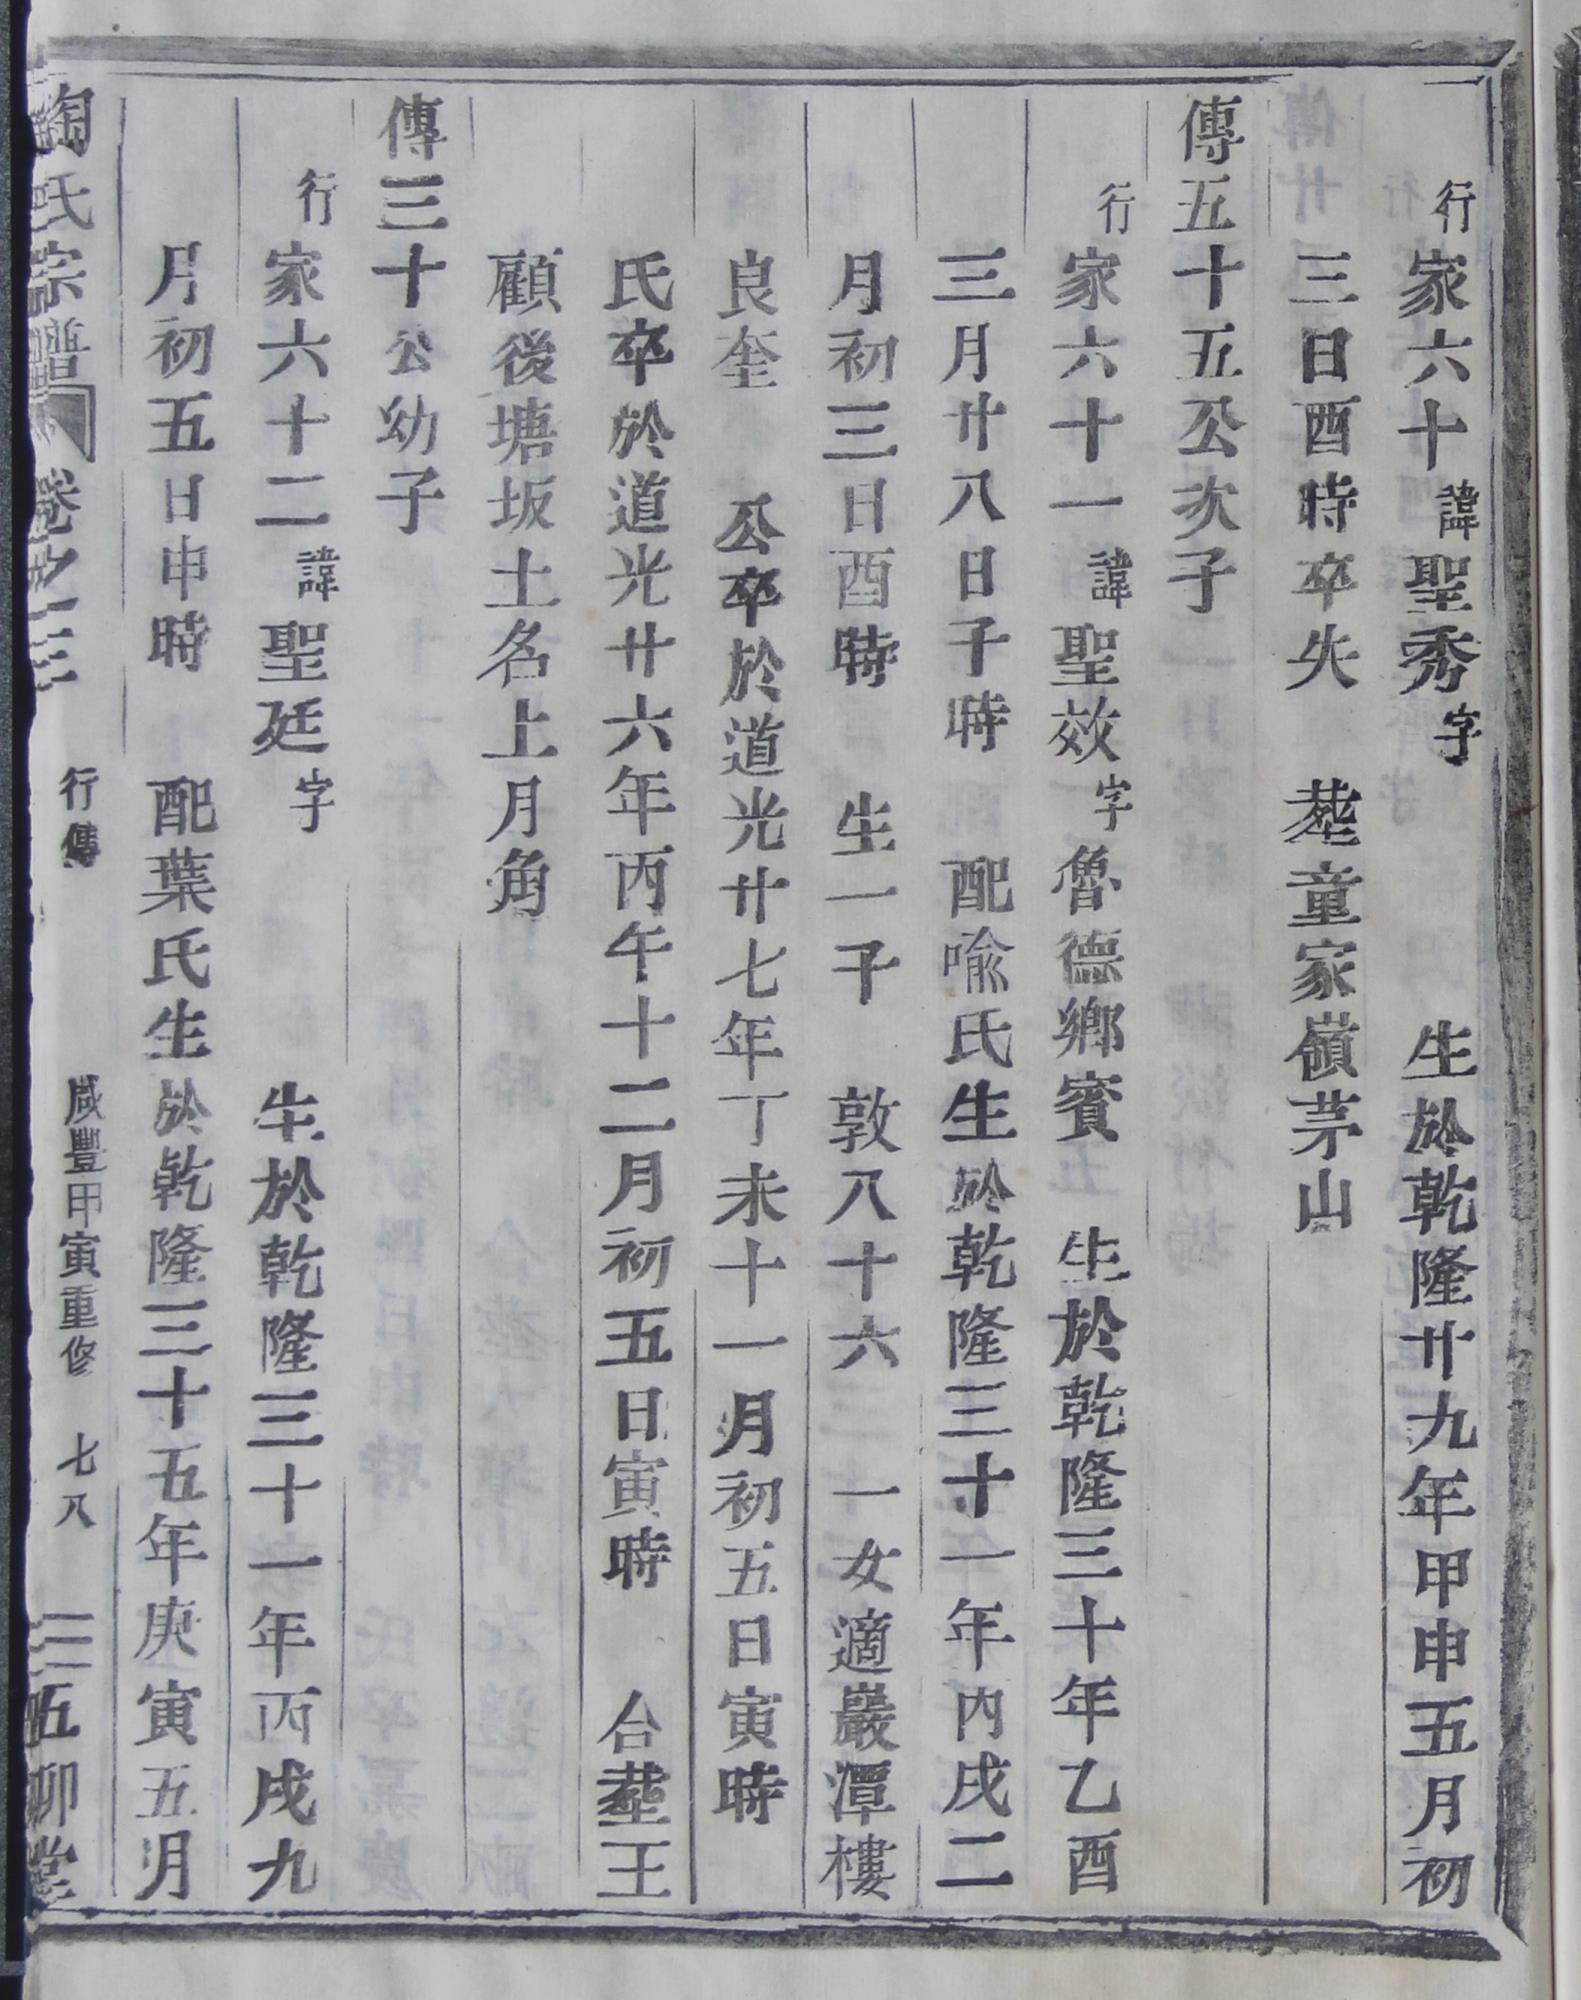 行家六十諱聖秀字 生於乾隆廿九年甲申五月初
三日酉時卒失 塟童家嶺茅山
傳五十五公次子
行家六十一諱聖效字魯德鄉賓 生於乾隆三十年乙酉
三月廿八日子時 配喻氏生於乾隆三十一年丙戌二
月初三日酉時 生一子 敦八十六 一女適巖潭樓
良奎 公卒於道光廿七年丁未十一月初五日寅時
氏卒於道光廿六年丙午十二月初五日寅時 合塟王
顧後塘坂土名上月角
傳三十公幼子
行家六十二諱聖廷字 生於乾隆三十一年丙戌九
月初五日申時 配葉氏生於乾隆三十五年庚寅五月
陶氏宗譜 卷之三 行傳 咸豐甲寅重修 七八 五柳堂